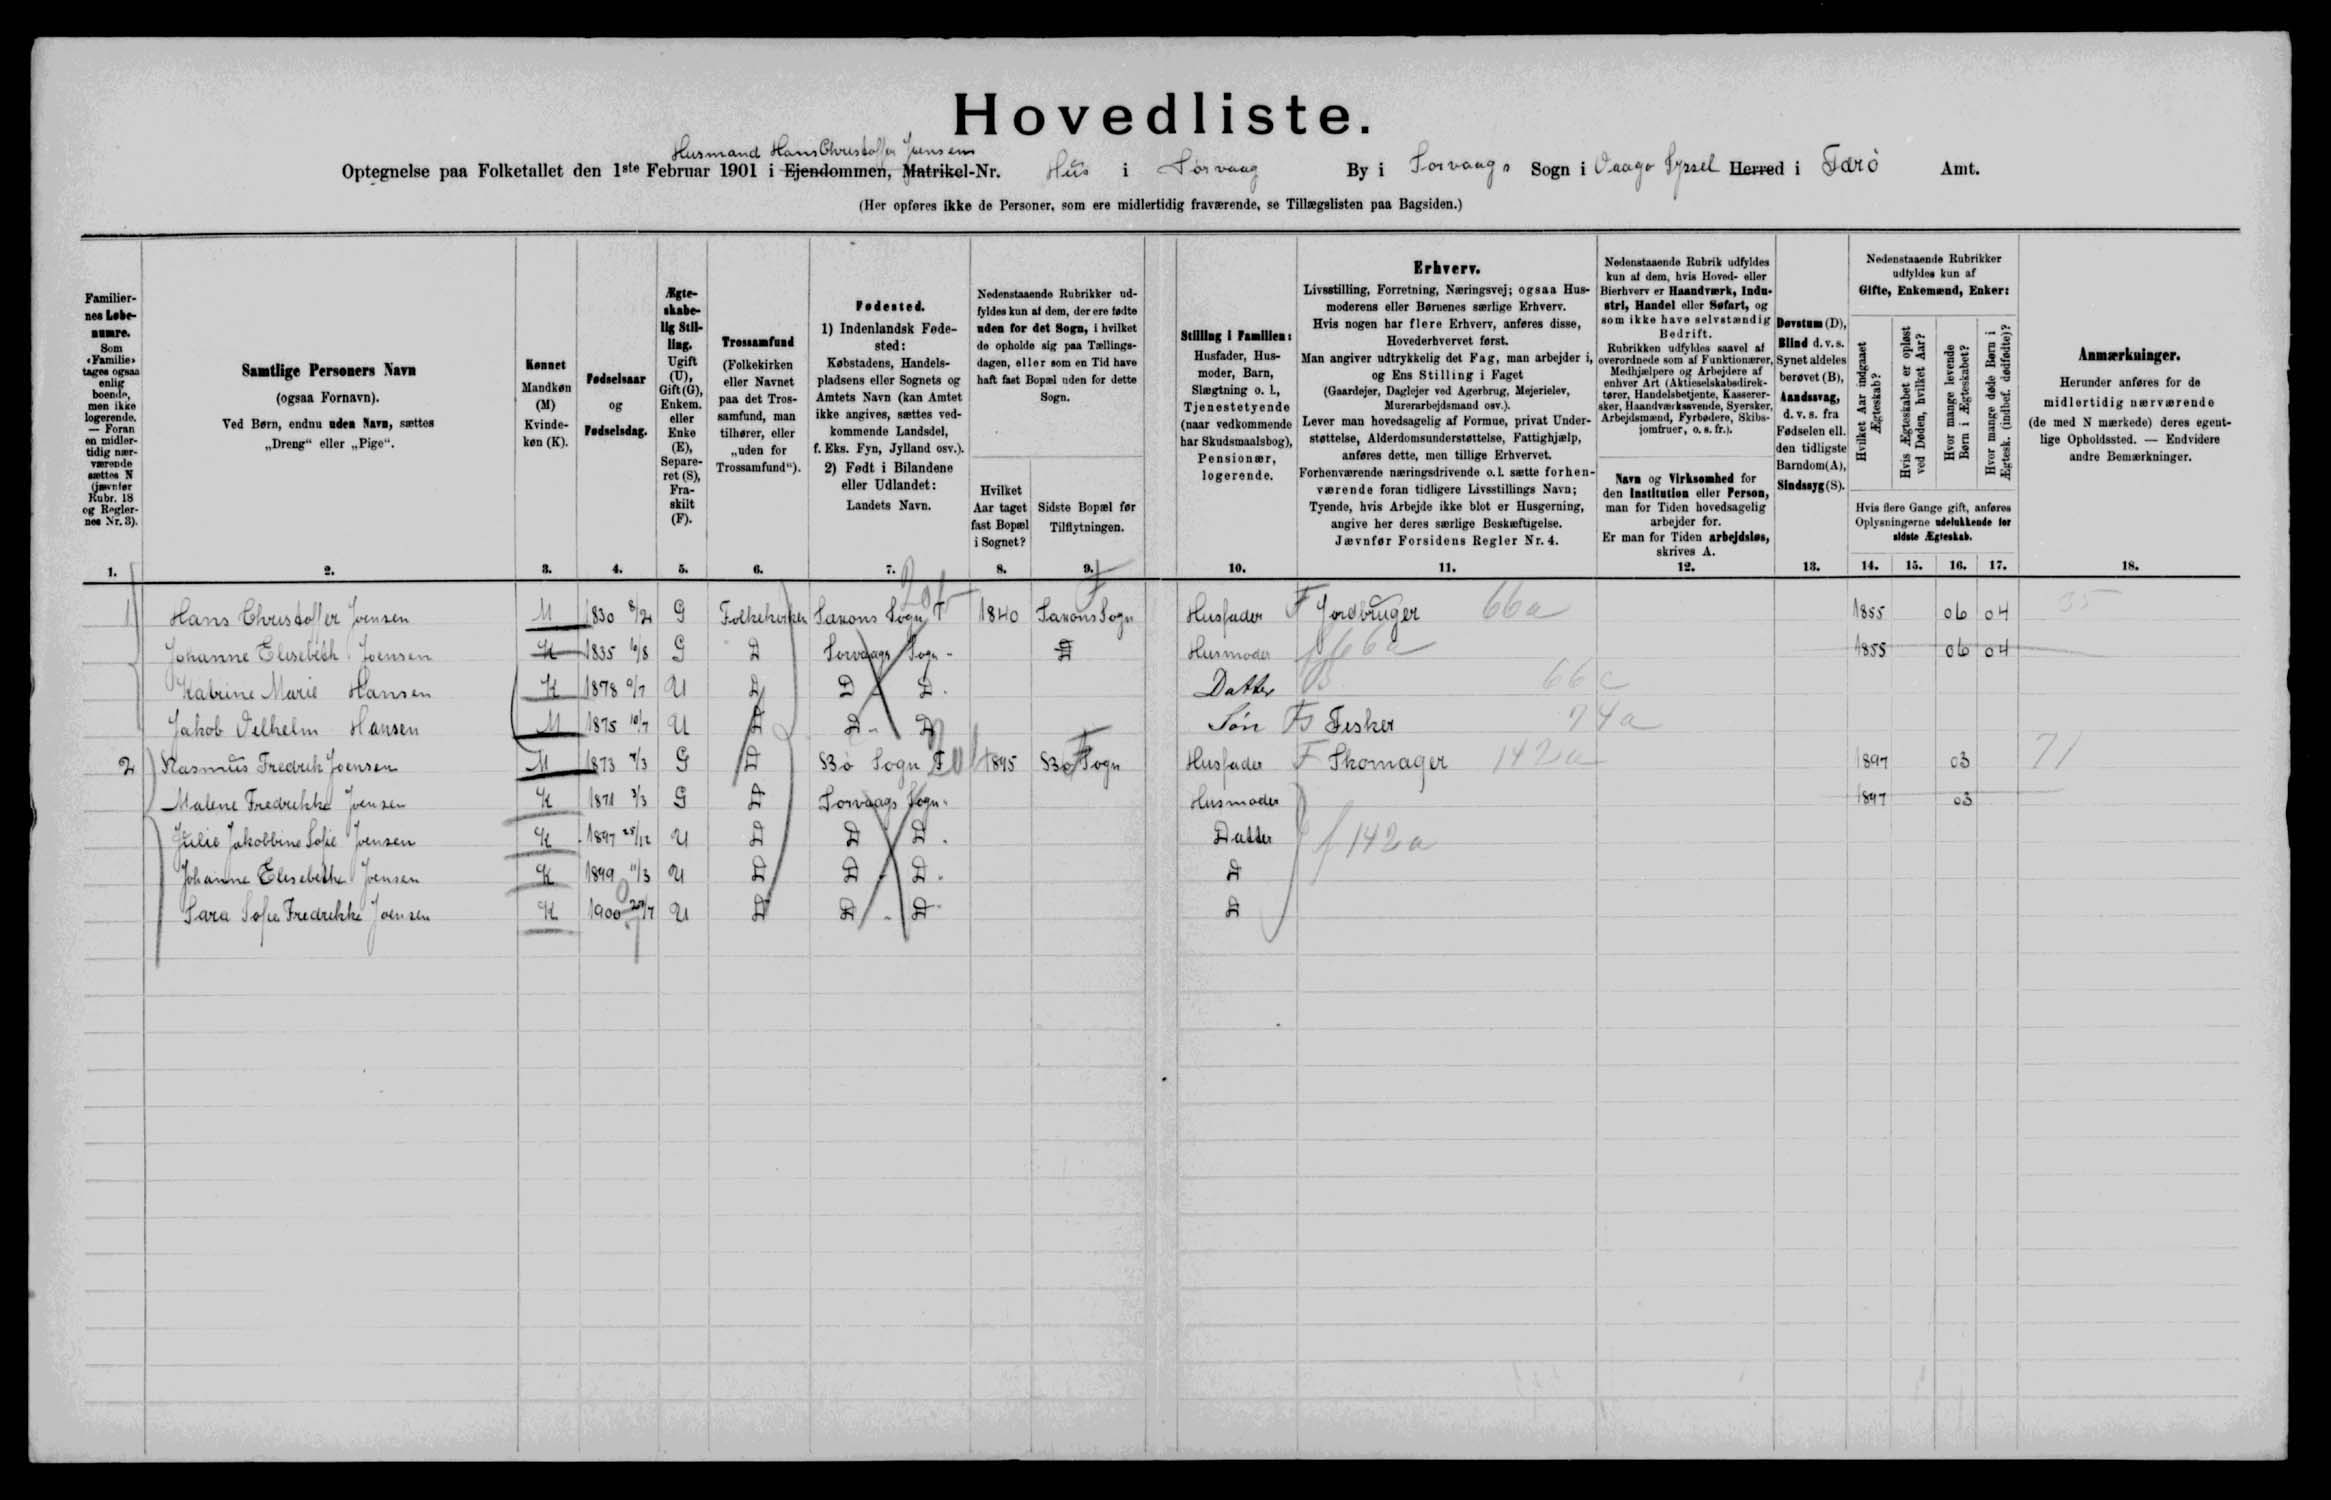 Hovedliste.
Husmand Hans Christoffer Joensen
Optegnelse paa Folketallet den 1ste Februar 1901 i Ejendommen, Matrikel-Nr. Hus i Sorvaag By i Sorvaags Sogn i Vaagø Syssel Herred i Færö Amt.
(Her opføres ikke de Personer, som ere midlertidig fraværende, se Tillægslisten paa Bagsiden.)
Familiernes Løbenumre. Som «Familie» tages ogsaa enlig boende, men ikke logerende. — Foran en midlertidig nærværende sættes N (jævnfør Rubr. 18 og Reglernes Nr. 3).
Samtlige Personers Navn (ogsaa Fornavn). Ved Børn, endnu uden Navn, sættes „Dreng“ eller „Pige“.
Kønnet Mandkøn (M) Kvindekøn (K).
Fødselsaar og Fødselsdag.
Ægteskabelig Stilling. Ugift (U), Gift (G), Enkem. eller Enke (E), Separeret (S), Fraskilt (F).
Trossamfund (Folkekirken eller Navnet paa det Trossamfund, man tilhører, eller „uden for Trossamfund“).
Fødested. 1) Indenlandsk Fødested: Købstadens, Handelspladsens eller Sognets og Amtets Navn (kan Amtet ikke angives, sættes vedkommende Landsdel, f. Eks. Fyn, Jylland osv.). 2) Født i Bilandene eller Udlandet: Landets Navn.
Nedenstaaende Rubrikker udfyldes kun af dem, der ere fødte uden for det Sogn, i hvilket de opholde sig paa Tællingsdagen, eller som en Tid have haft fast Bopæl uden for dette Sogn.
Hvilket Aar taget fast Bopæl i Sognet?
Sidste Bopæl før Tilflytningen.
Stilling i Familien: Husfader, Husmoder, Barn, Slægtning o. l., Tjenestetyende (naar vedkommende har Skudsmaalsbog), Pensionær, logerende.
Erhverv. Livsstilling, Forretning, Næringsvej; ogsaa Husmoderens eller Børnenes særlige Erhverv. Hvis nogen har flere Erhverv, anføres disse, Hovederhvervet først. Man angiver udtrykkelig det Fag, man arbejder i, og Ens Stilling i Faget (Gaardejer, Daglejer ved Agerbrug, Mejerielev, Murerarbejdsmand osv.). Lever man hovedsagelig af Formue, privat Understøttelse, Alderdomsunderstøttelse, Fattighjælp, anføres dette, men tillige Erhvervet. Forhenværende næringsdrivende o. l. sætte forhenværende foran tidligere Livsstillings Navn; Tyende, hvis Arbejde ikke blot er Husgerning, angive her deres særlige Beskæftigelse. Jævnfør Forsidens Regler Nr. 4.
Nedenstaaende Rubrik udfyldes kun af dem, hvis Hoved- eller Bierhverv er Haandværk, Industri, Handel eller Søfart, og som ikke have selvstændig Bedrift. Rubrikken udfyldes saavel af overordnede som af Funktionærer, Medhjælpere og Arbejdere af enhver Art (Aktieselskabsdirektører, Handelsbetjente, Kasserersker, Haandværkssvende, Syersker, Arbejdsmænd, Fyrbødere, Skibsjomfruer, o. s. fr.).
Navn og Virksomhed for den Institution eller Person, man for Tiden hovedsagelig arbejder for. Er man for Tiden arbejdsløs, skrives A.
Døvstum (D), Blind d. v. s. Synet aldeles berøvet (B), Aandssvag, d. v. s. fra Fødselen ell. den tidligste Barndom (A), Sindssyg (S).
Nedenstaaende Rubrikker udfyldes kun af Gifte, Enkemænd, Enker:
Hvilket Aar indgaaet Ægteskab?
Hvis Ægteskabet er opløst ved Døden, hvilket Aar?
Hvor mange levende Børn i Ægteskabet?
Hvor mange døde Børn i Ægtesk. (indbef. dødfødte)?
Hvis flere Gange gift, anføres Oplysningerne udelukkende for sidste Ægteskab.
Anmærkninger. Herunder anføres for de midlertidig nærværende (de med N mærkede) deres egentlige Opholdssted. — Endvidere andre Bemærkninger.
1. 2. 3. 4. 5. 6. 7. 8. 9. 10. 11. 12. 13. 14. 15. 16. 17. 18.
1 Hans Christoffer Joensen M 1830 8/2 G Folkekirken Saxons Sogn F 1840 Saxons Sogn Husfader F Jordbruger 66a 1855 06 04 35
Johanne Elisebeth Joensen K 1835 6/8 G D Sorvaags Sogn D Husmoder 66a 1855 06 04
Katrine Marie Hansen K 1878 U D D D Datter 66c
Jakob Vilhelm Hansen M 1875 10/7 U D D D Søn Fisker 74a
2 Rasmus Fredrik Joensen M 1873 7/3 G D Bø Sogn F 1895 Bø Sogn Husfader F Skomager 142a 1897 03 71
Malene Fredrikke Joensen K 1871 3/3 G D Sorvaags Sogn Husmoder 1897 03
Julie Jakobbine Sofie Joensen K 1897 25/12 U D D D Datter f 142a
Johanne Elisebeth Joensen K 1899 11/3 U D D D D
Sara Sofie Fredrikke Joensen K 1900 U D D D D